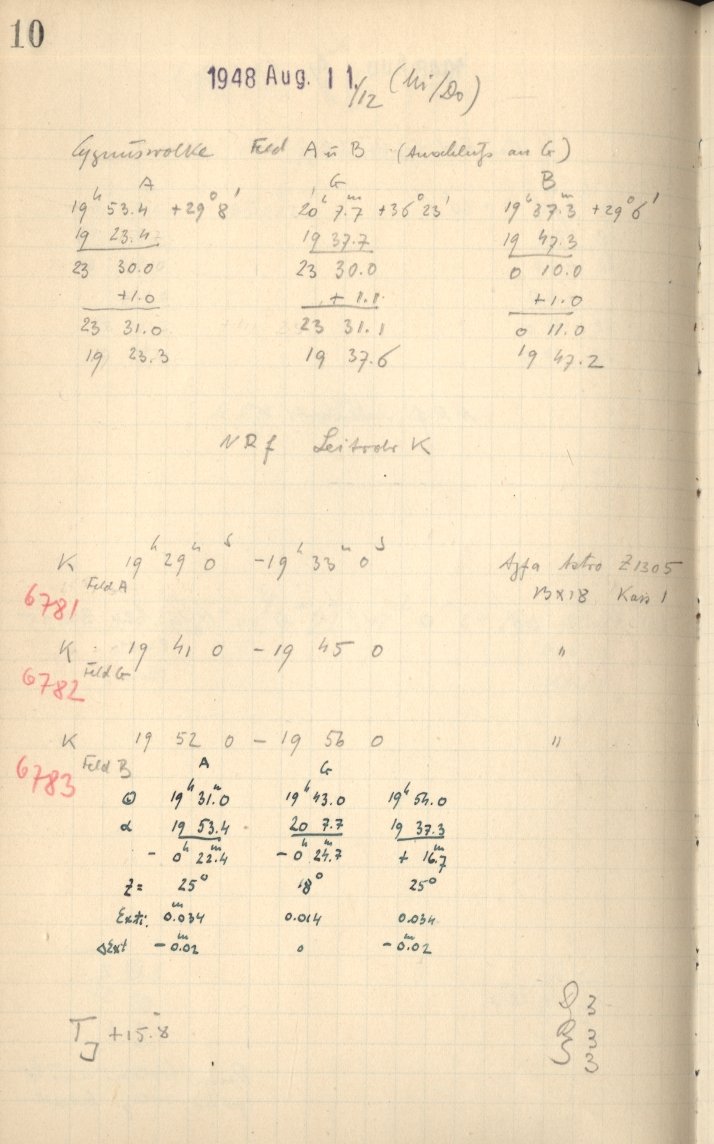 10
1948 Aug. 11./12 (Mi/Do)
Cygnuswolke Feld A u B (Anschluß an G)
A G B
19h 53.4 +29° 8' 20h 7.m7 +36° 23' 19h 37.m3 +29° 6'
19 23.4 19 37.7 19 47.3
23 30.0 23 30.0 0 10.0
+1.0 + 1.1 +1.0
23 31.0 23 31.1 0 11.0
19 23.3 19 37.6 19 47.2
NRf Leitrohr K
K 19h 29m 0s - 19h 33m 0s Agfa Astro Z1305
Feld A 13x18 Kass 1
6781
K 19 41 0 - 19 45 0 "
Feld G
6782
K 19 52 0 - 19 56 0 "
Feld B
6783
A G
Θ 19h 31.m0 19h 43.0 19h 54.0
α 19 53.4 20 7.7 19 37.3
- 0h 22.m4 - 0h 24.m7 + 16.m7
Z= 25° 18° 25°
Ext: 0.m034 0.014 0.034
ΔExt - 0.m02 0 - 0.m02
TJ +15.8
3
3
3